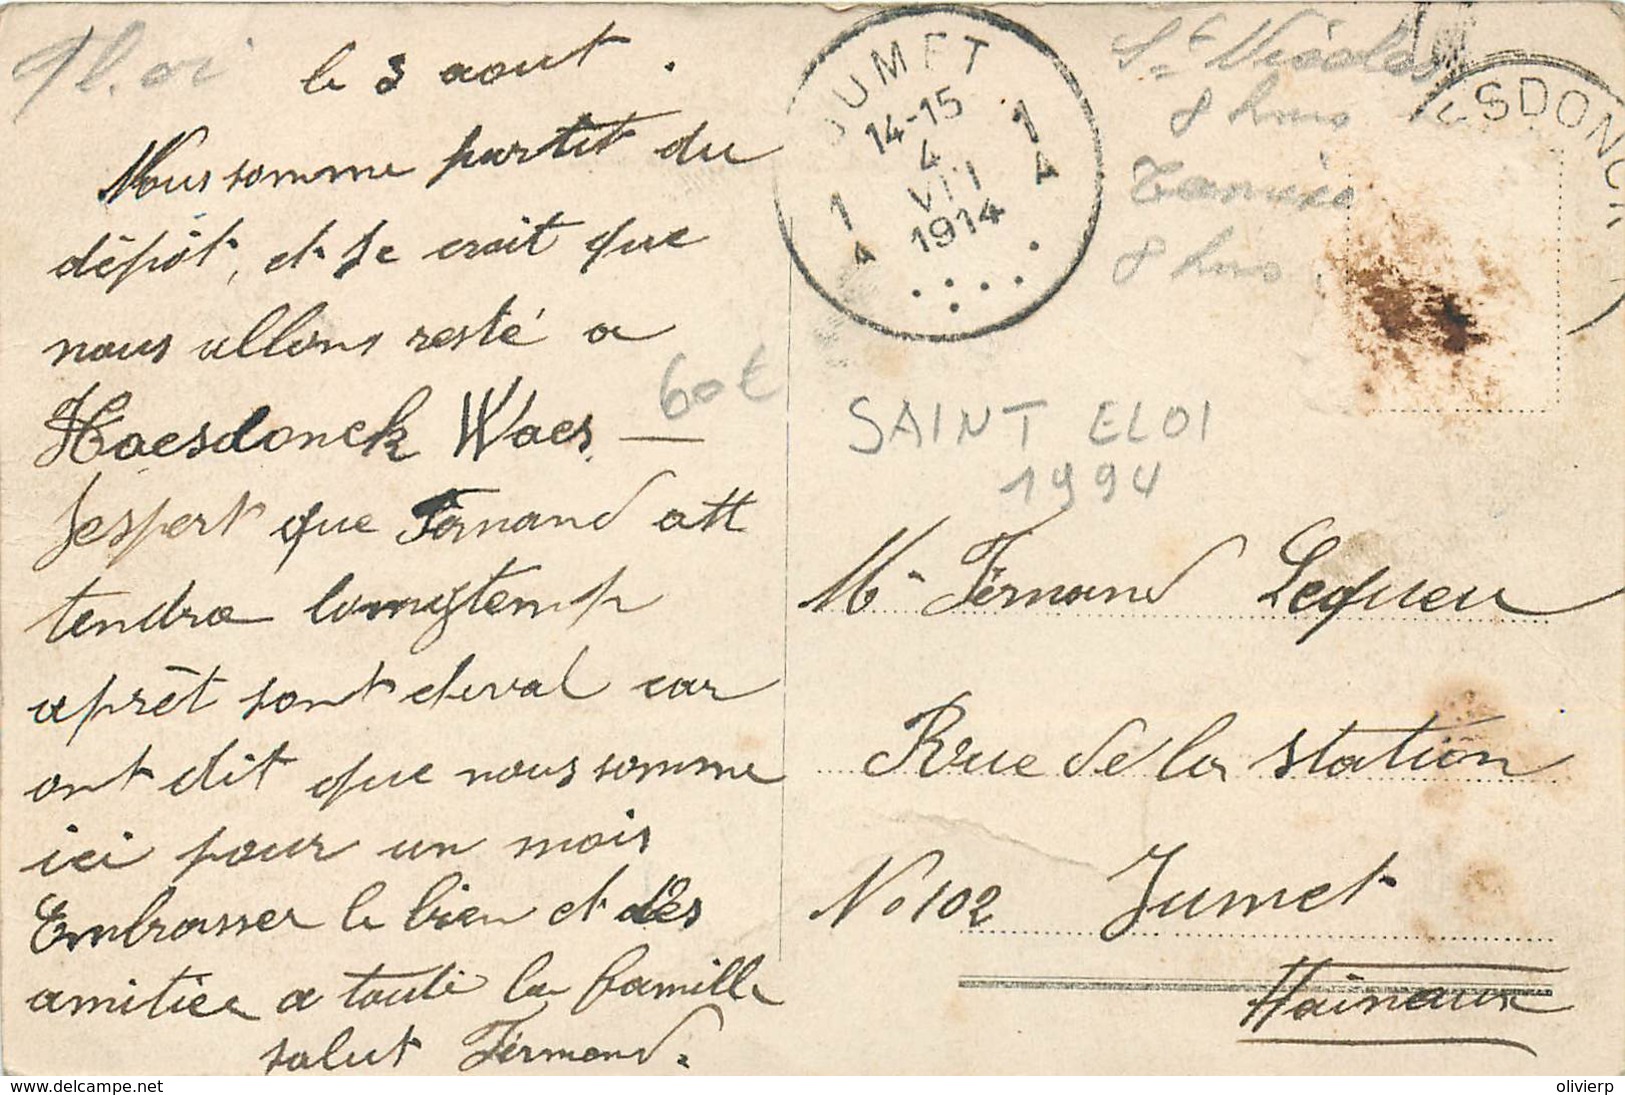 le 3 aout .
Nous somme partit du
dépôt, et Je croit que
nous allons resté a
Haesdonck Waes.
J'espert que Fernand att
tendra lomgtemp
aprêt sont cheval car
ont dit que nous somme
ici pour un mois
Embrasser le bien et dès
amitiée a toute la famille
salut Fernand.
60€
JUMET
14-15
4
VII
1914
1
A
1
A
St Nicolas
8 hrs
Tamise
8 hrs
ESDONCK
SAINT ELOI
1994
Mr Fernand Lequeu
Rue de la station
No 102 Jumet
Hainaux
delcampe.net
olivierp